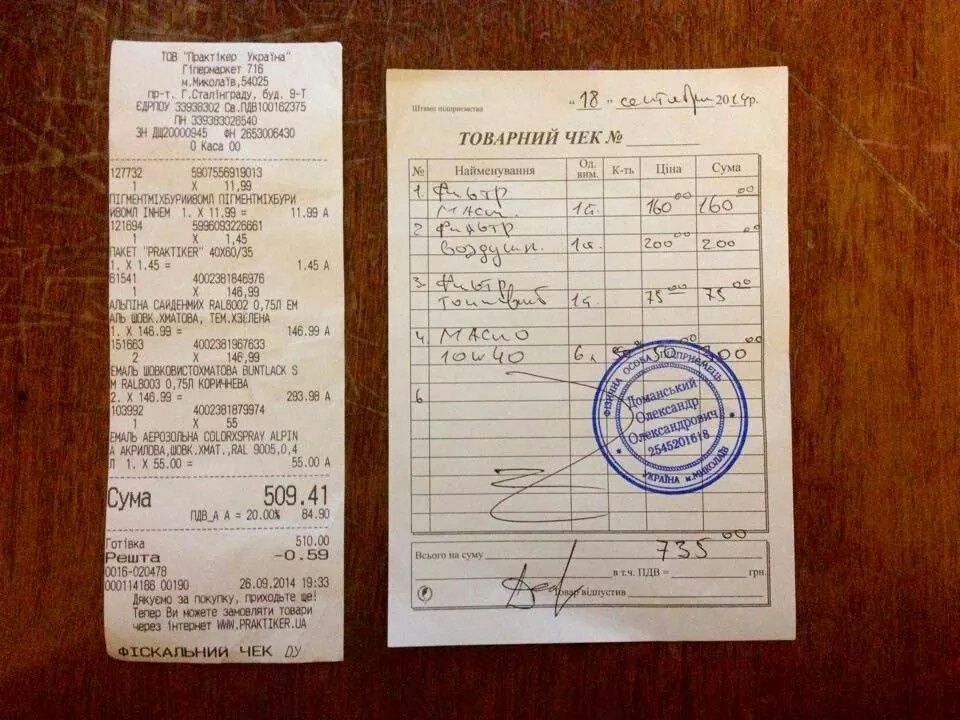 ТОВ "Практікер Україна"
Гіпермаркет 716
м.Миколаїв,54025
пр-т. Г.Сталінграду, буд. 9-Т
ЄДРПОУ 33938302 Св.ПДВ100162375
ПН 339383026540
ЗН ДЩ20000945 ФН 2653006430
0 Каса 00
127732 5907556919013
1 X 11,99
ПІГМЕНТМІХБУРИЙ80МЛ ПІГМЕНТМІХБУРИ
Й80МЛ INHEM 1. X 11.99 = 11.99 А
121694 5996093226661
1 X 1,45
ПАКЕТ "PRAKTIKER" 40X60/35
1. X 1.45 = 1.45 А
61541 4002381846976
1 X 146,99
АЛЬПІНА САЙДЕНМИХ RAL8002 0,75Л ЕМ
АЛЬ ШОВК.ХМАТОВА, ТЕМ.ХЗЕЛЕНА
1. X 146.99 = 146.99 А
151663 4002381967633
2 X 146,99
ЕМАЛЬ ШОВКОВИСТОХМАТОВА BUNTLACK S
M RAL8003 0,75Л КОРИЧНЕВА
2. X 146.99 = 293.98 А
103992 4002381879974
1 X 55
ЕМАЛЬ АЕРОЗОЛЬНА COLORXSPRAY ALPIN
A АКРИЛОВА,ШОВК.ХМАТ.,RAL 9005,0,4
Л 1. X 55.00 = 55.00 А
Сума 509.41
ПДВ_А А = 20.00% 84.90
Готівка 510.00
Решта -0.59
0016-020478
000114186 00190 26.09.2014 19:33
Дякуємо за покупку, приходьте ще!
Тепер Ви можете замовляти товари
через інтернет WWW.PRAKTIKER.UA
ФІСКАЛЬНИЙ ЧЕК
Штамп підприємства "18" сентября 2014р.
ТОВАРНИЙ ЧЕК №
№ Найменування Од. вим. К-ть Ціна Сума
1. Фильтр
масл. 1 160 00 160 00
2 Фильтр
воздушн. 1 200 00 200 00
3. Фильтр
топливн 1 75 00 75 00
4. МАСЛО
10W40 6 л 50 300
6
ФІЗИЧНА ОСОБА ПІДПРИЄМЕЦЬ
Доманський
Олександр
Олександрович
2545201618
УКРАЇНА м.МИКОЛАЇВ
Всього на суму 735 00
в т.ч. ПДВ = грн.
Товар відпустив